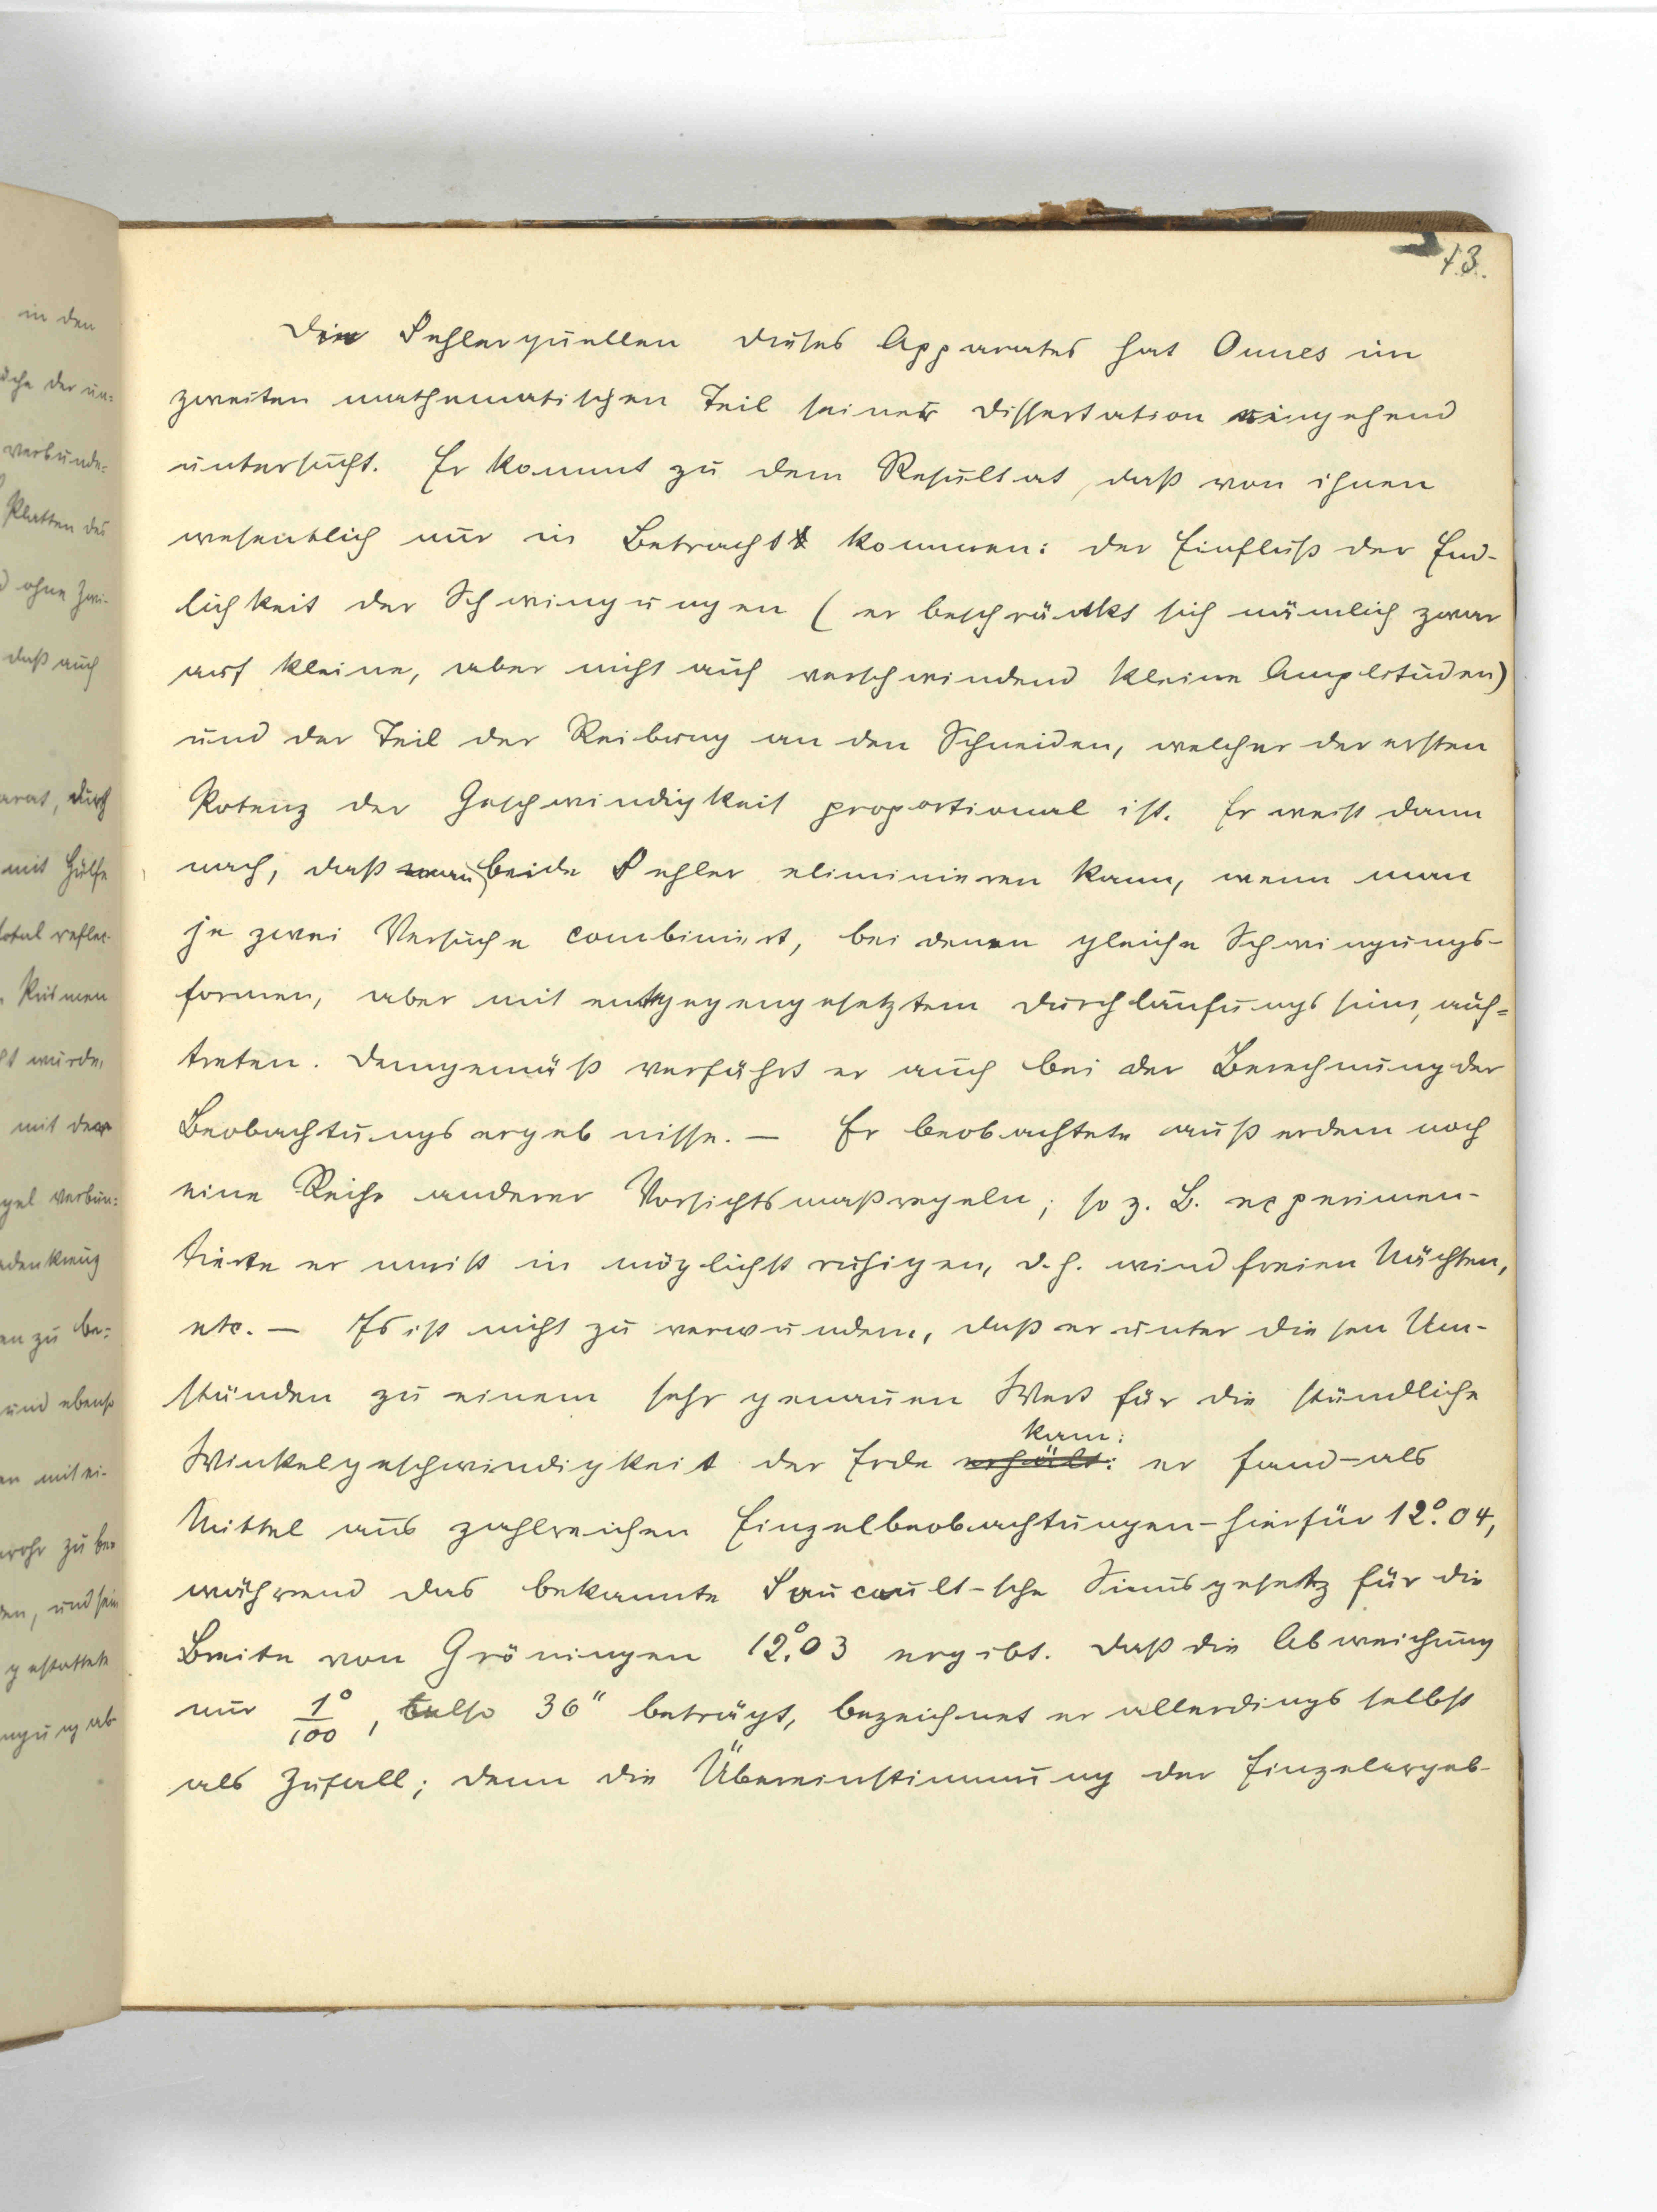 13.
Die Fehlerquellen dieses Apparates hat Onnes im
zweiten mathematischen Teil seiner Dissertation eingehend
untersucht. Er kommt zu dem Resultat, daß von ihnen
wesentlich nur in Betracht kommen: der Einfluß der End-
lichkeit der Schwingungen (er beschränkt sich nämlich zwar
auf kleine, aber nicht auf verschwindend kleine Amplituden)
und der Teil der Reibung an den Schneiden, welcher der ersten
Potenz der Geschwindigkeit proportional ist. Er weist dann
nach, daß man beide Fehler eliminieren kann, wenn man
je zwei Versuche combiniert, bei denen gleiche Schwingungs-
formen, aber mit entgegengesetztem Durchlaufungssinn, auf=
treten. Demgemäß verfährt er auch bei der Berechnung der
Beobachtungsergebnisse. — Er beobachtete außerdem noch
eine Reihe anderer Vorsichtsmaßregeln; so z. B. experimen-
tierte er meist in möglichst ruhigen, d. h. windfreien Nächten,
etc. — Es ist nicht zu verwundern, daß er unter diesen Um-
ständen zu einem sehr genauen Wert für die stündliche
kam:
Winkelgeschwindigkeit der Erde erhält: er fand – als
Mittel aus zahlreichen Einzelbeobachtungen – hierfür 12°.04,
während das bekannte Foucault-sche Sinusgesetz für die
Breite von Gröningen 12°.03 ergibt. Daß die Abweichung
nur 1°/100, also 36" beträgt, bezeichnet er allerdings selbst
als Zufall; denn die Übereinstimmung der Einzelergeb-
in den
der un=
verbunde=
Platten des
ohne Zwi-
daß auch
durch
mit Hülfe
total reflec-
wurde,
mit dem
verbun=
zu be=
und ebenso
mit ei-
zu be=
und sein
gestattete